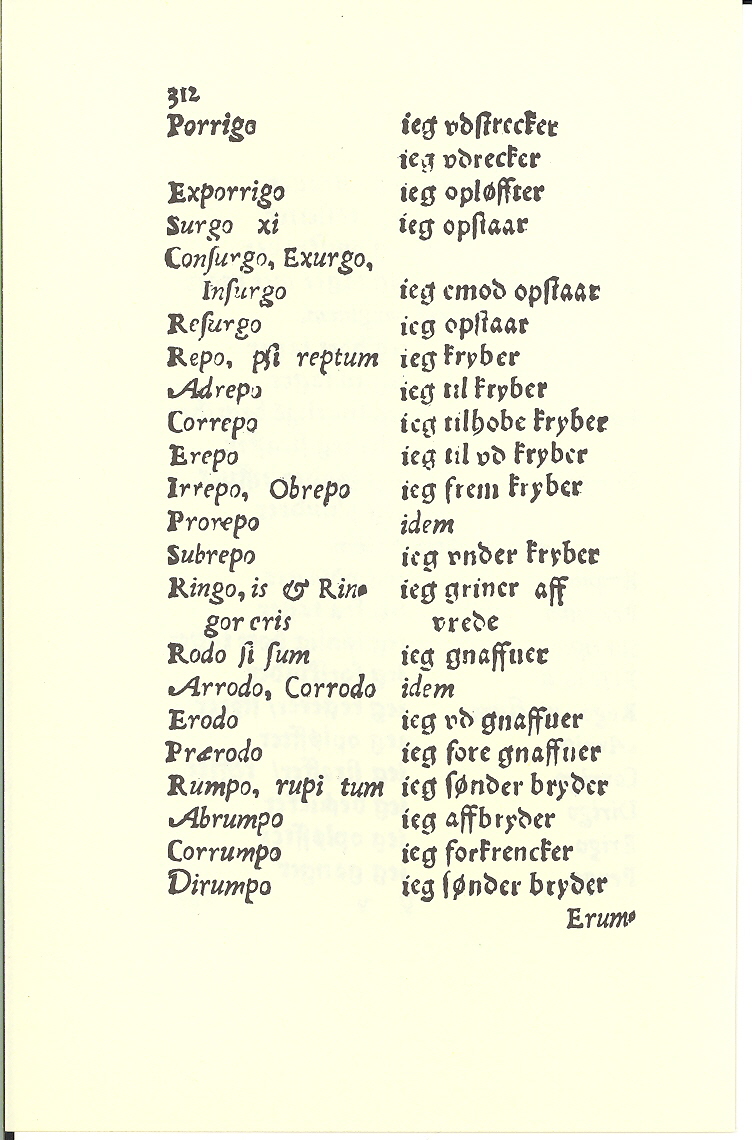 312
Porrigo ieg vdstrecker
ieg vdrecker
Exporrigo ieg opløffter
Surgo xi ieg opstaar
Conſurgo, Exurgo,
Inſurgo ieg emod opstaar
Reſurgo ieg opstaar
Repo, pſi reptum ieg kryber
Adrepo ieg til kryber
Correpo ieg tilhobe kryber
Erepo ieg til vd kryber
Irrepo, Obrepo ieg frem kryber
Prorepo idem
Subrepo ieg vnder kryber
Ringo, is & Rin- ieg griner aff
gor eris vrede
Rodo ſi ſum ieg gnaffuer
Arrodo, Corrodo idem
Erodo ieg vd gnaffuer
Prærodo ieg fore gnaffuer
Rumpo, rupi tum ieg ſønder bryder
Abrumpo ieg affbryder
Corrumpo ieg forkrencker
Dirumpo ieg ſønder bryder
Erum-